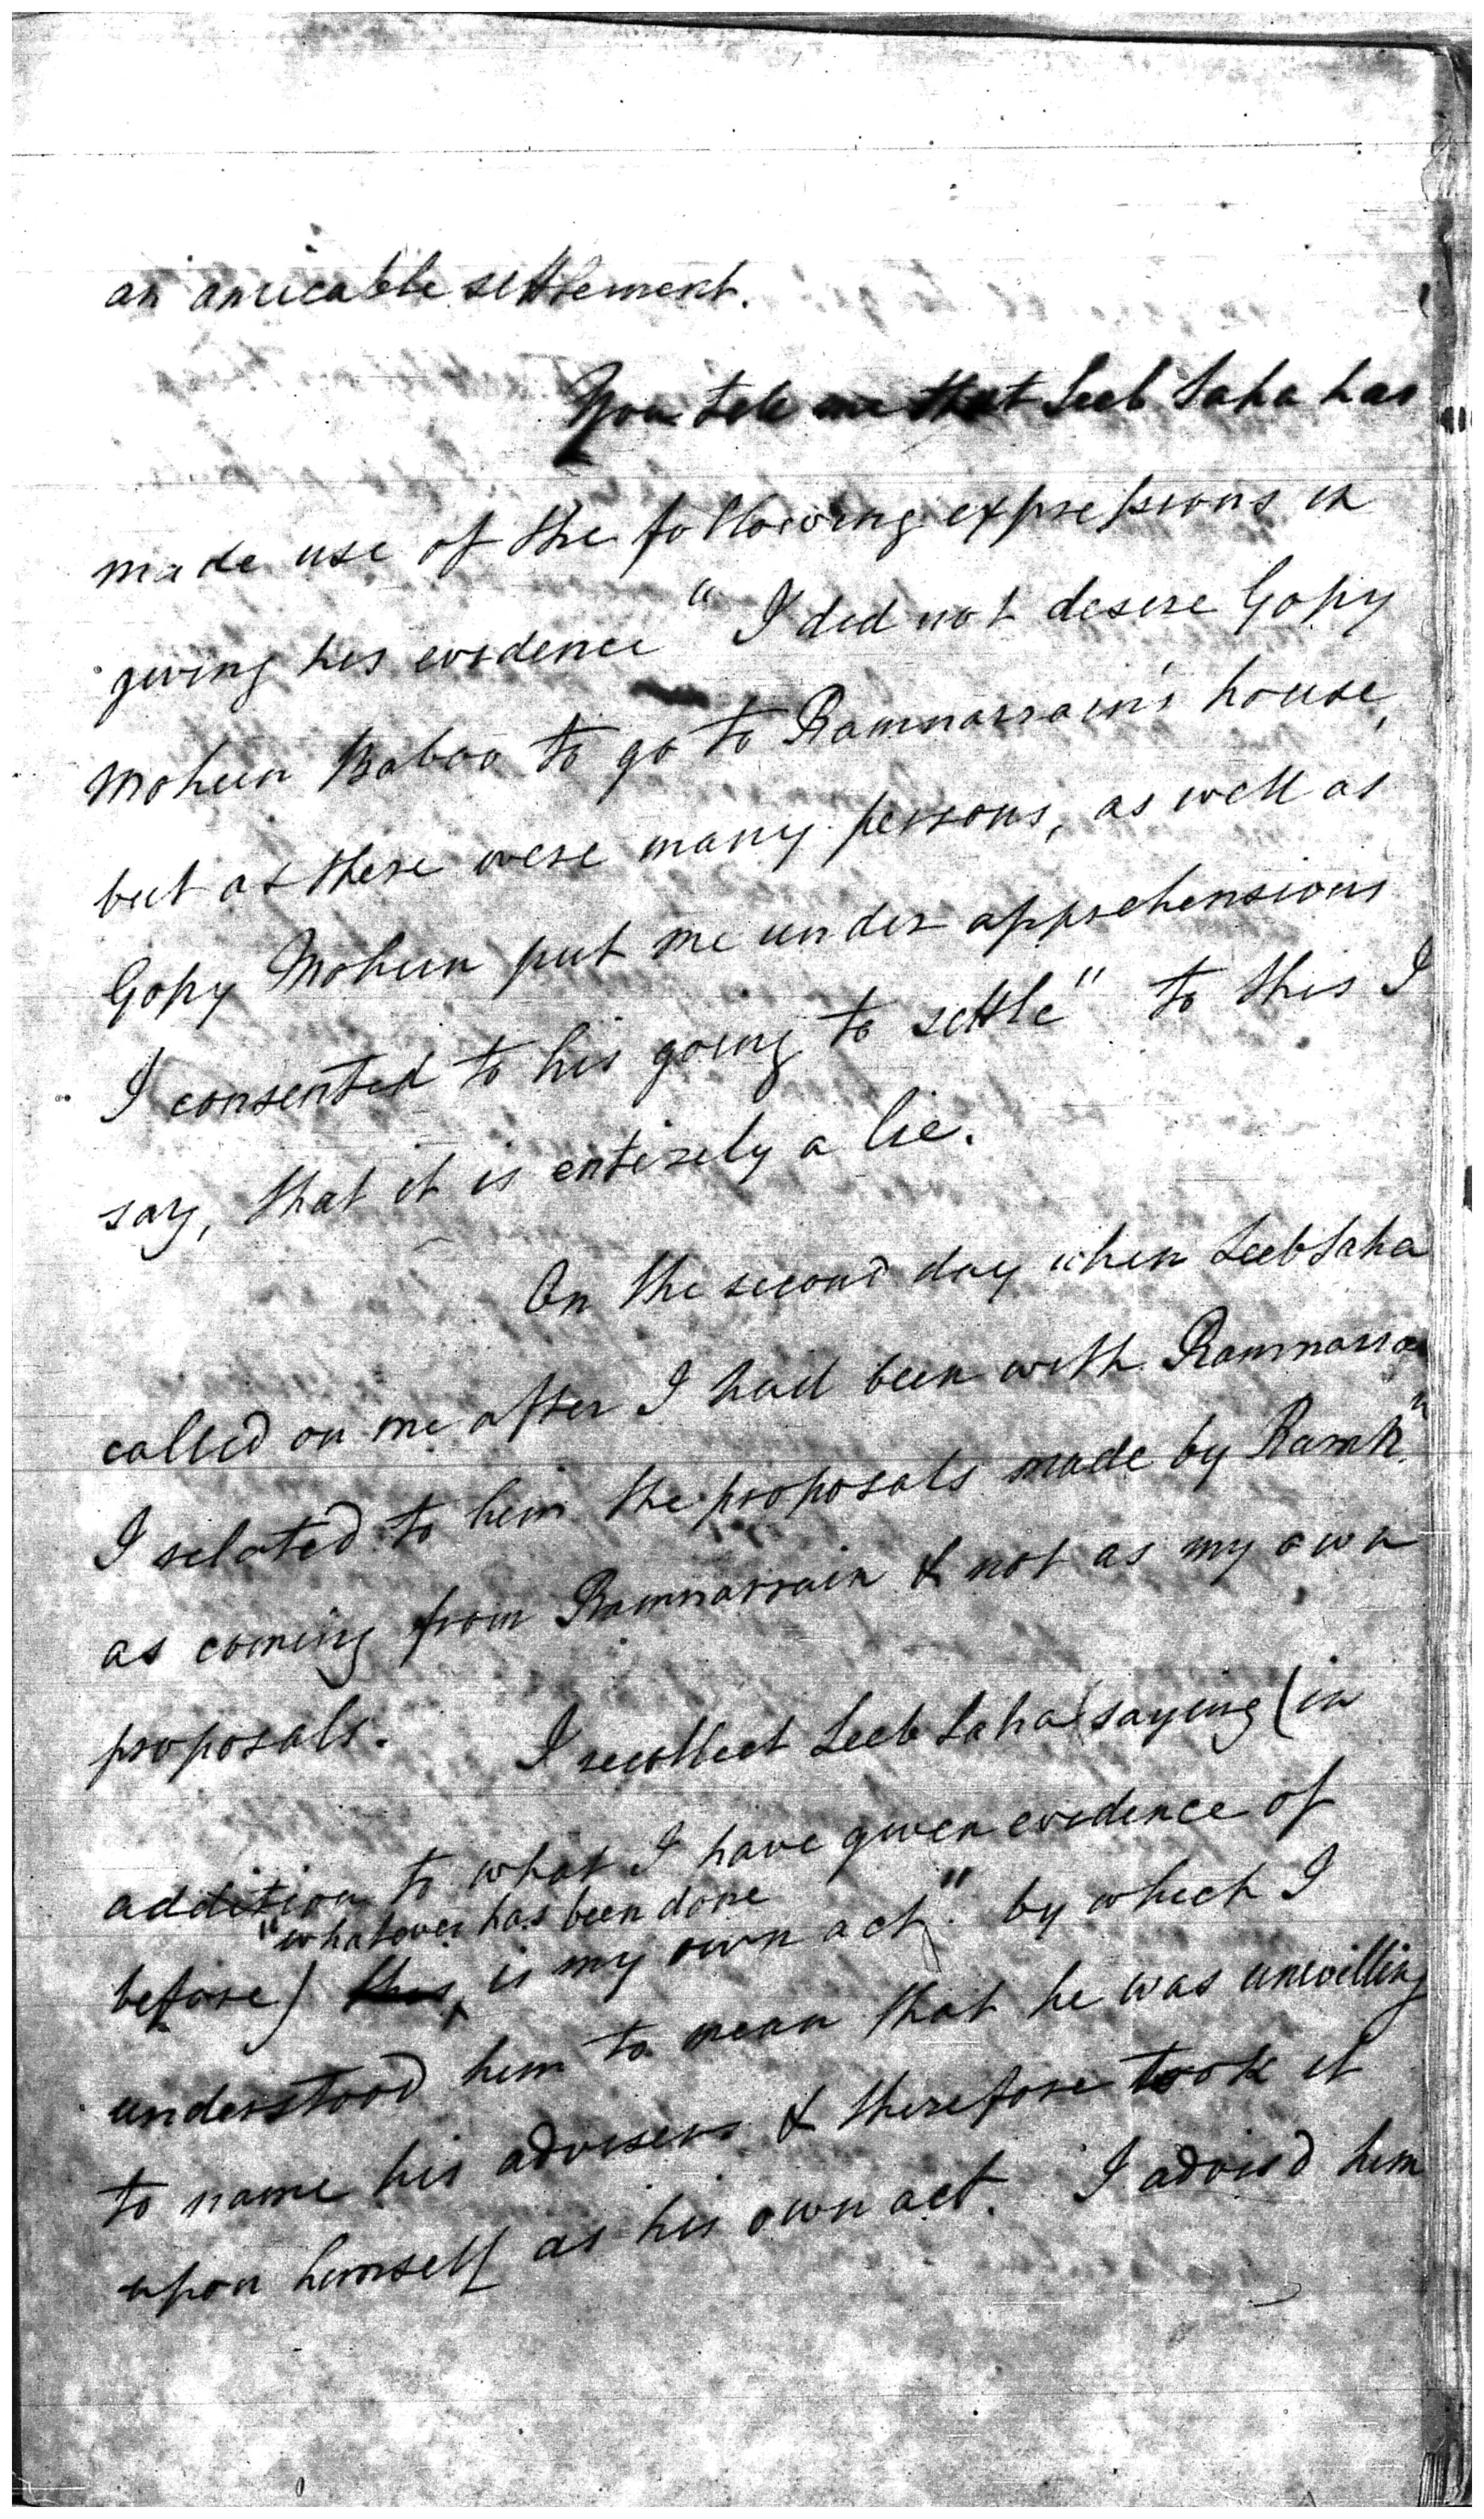 an amicable settlement.
You tell me that Seeb Saha has
made use of the following expressions in
giving his evidence " I did not desire Gopy
Mohun Baboo to go to Ramnarrain's house,
but as there were many persons, as well as
Gopy Mohun put me under apprehensions
I consented to his going to settle" to this I
say, that it is entirely a lie.
On the second day when Seeb Saha
called on me after I had been with Ramnarrain
I related to him the proposals made by Ramn.
as coming from Ramnarrain & not as my own
proposals. I recollect Seeb Saha saying (in
addition to what I have given evidence of
"whatever has been done
before) this is my own act" by which I
understood him to mean that he was unwilling
to name his advisers & therefore took it
upon himself as his own act. I advis'd him